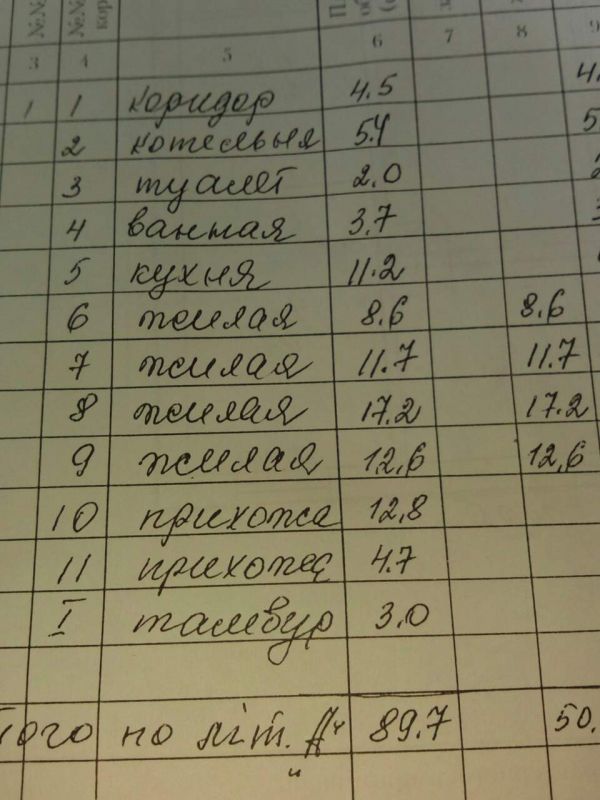 №№ №№
3 4 5 6 7 8 9
1 1 коридор 4.5 4.
2 котельня 5.4 5
3 туалет 2.0
4 ванная 3.7
5 кухня 11.2
6 жилая 8.6 8.6
7 жилая 11.7 11.7
8 жилая 17.2 17.2
9 жилая 12,6 12,6
10 прихожа 12,8
11 прихожа 4.7
I тамбур 3.0
того по літ. 89.7 50.